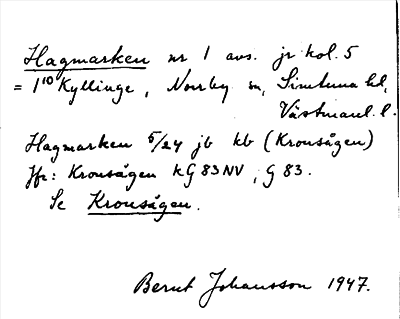 Hagmarken nr 1 avs. jr kol. 5
= 1¹⁰ Kyllinge, Norrby sn, Simtuna hd,
Västmanl. l.
Hagmarken 5/24 jb kb (Kronsågen)
Jfr: Kronsågen kG 83 NV, G 83.
Se Kronsågen.
Bernt Johansson 1947.